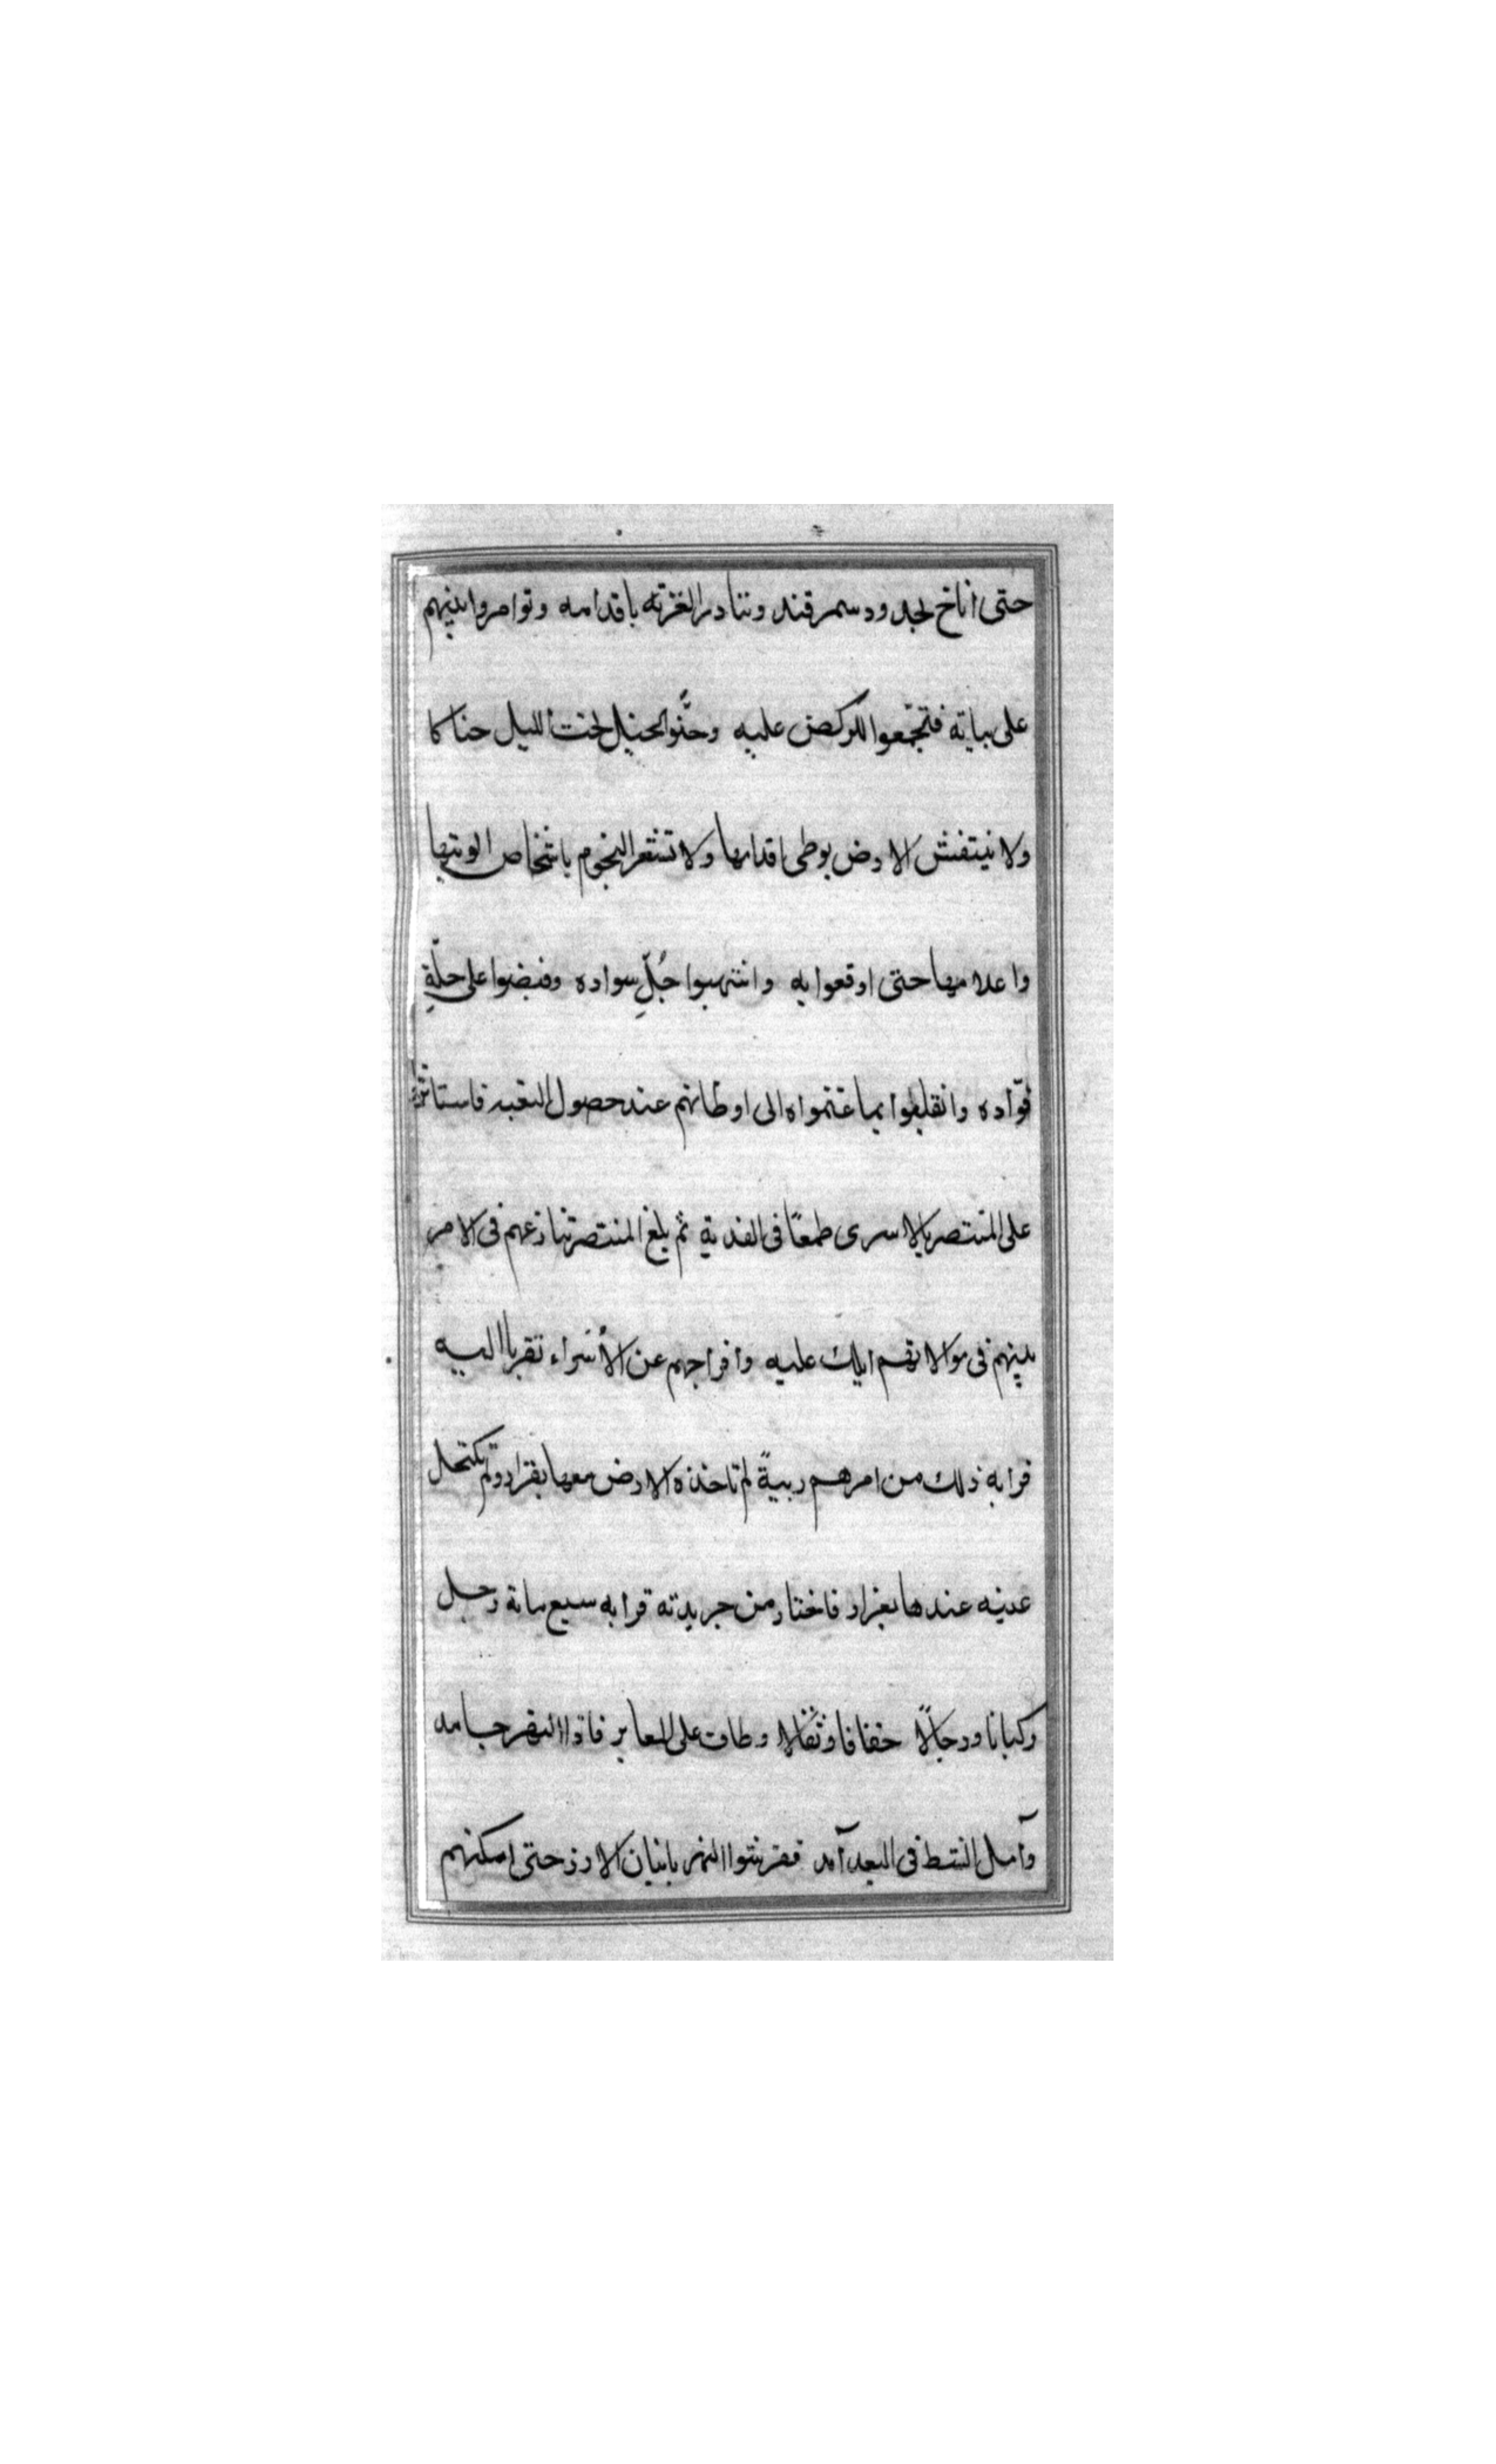 حتى اناخ بحدود سمرقند وتنادر الغزية باقدامه وتوامروا بينهم
على بياته فتجمّعوا للركض عليه وحثّوا الخيل تحت الليل حثا كا
ولا ينتفش الارض بوطى اقدامها ولا تشعر النجوم باشخاص الويتها
واعلامها حتى اوقعوا به وانتهبوا جُلّ سواده وقبضوا على جلّةِ
قوّاده وانقلبوا بما غنموه الى اوطانهم عند حصول البغية فاستاثروا
على المنتصر بالاسرى طمعًا فى الفدية ثم بلغ المنتصر تنازعهم فى الامر
بينهم فى موالاتهم ايلك عليه وافراجهم عن الأُسَراء تقربا اليه
فرابه ذلك من امرهم ريبةً لم تاخذه الارض معها بقرار ولم تكتحل
عينه عندها بغرار فاختار من جريدته قرابه سبع مائة رجل
ركبانا ورجالًا خفافا وثقالا وطاف على المعابر فاذا النهر جامد
وآمل الشط فى البعد آمد ففرشوا النهر باتبان الارز حتى امكنهم